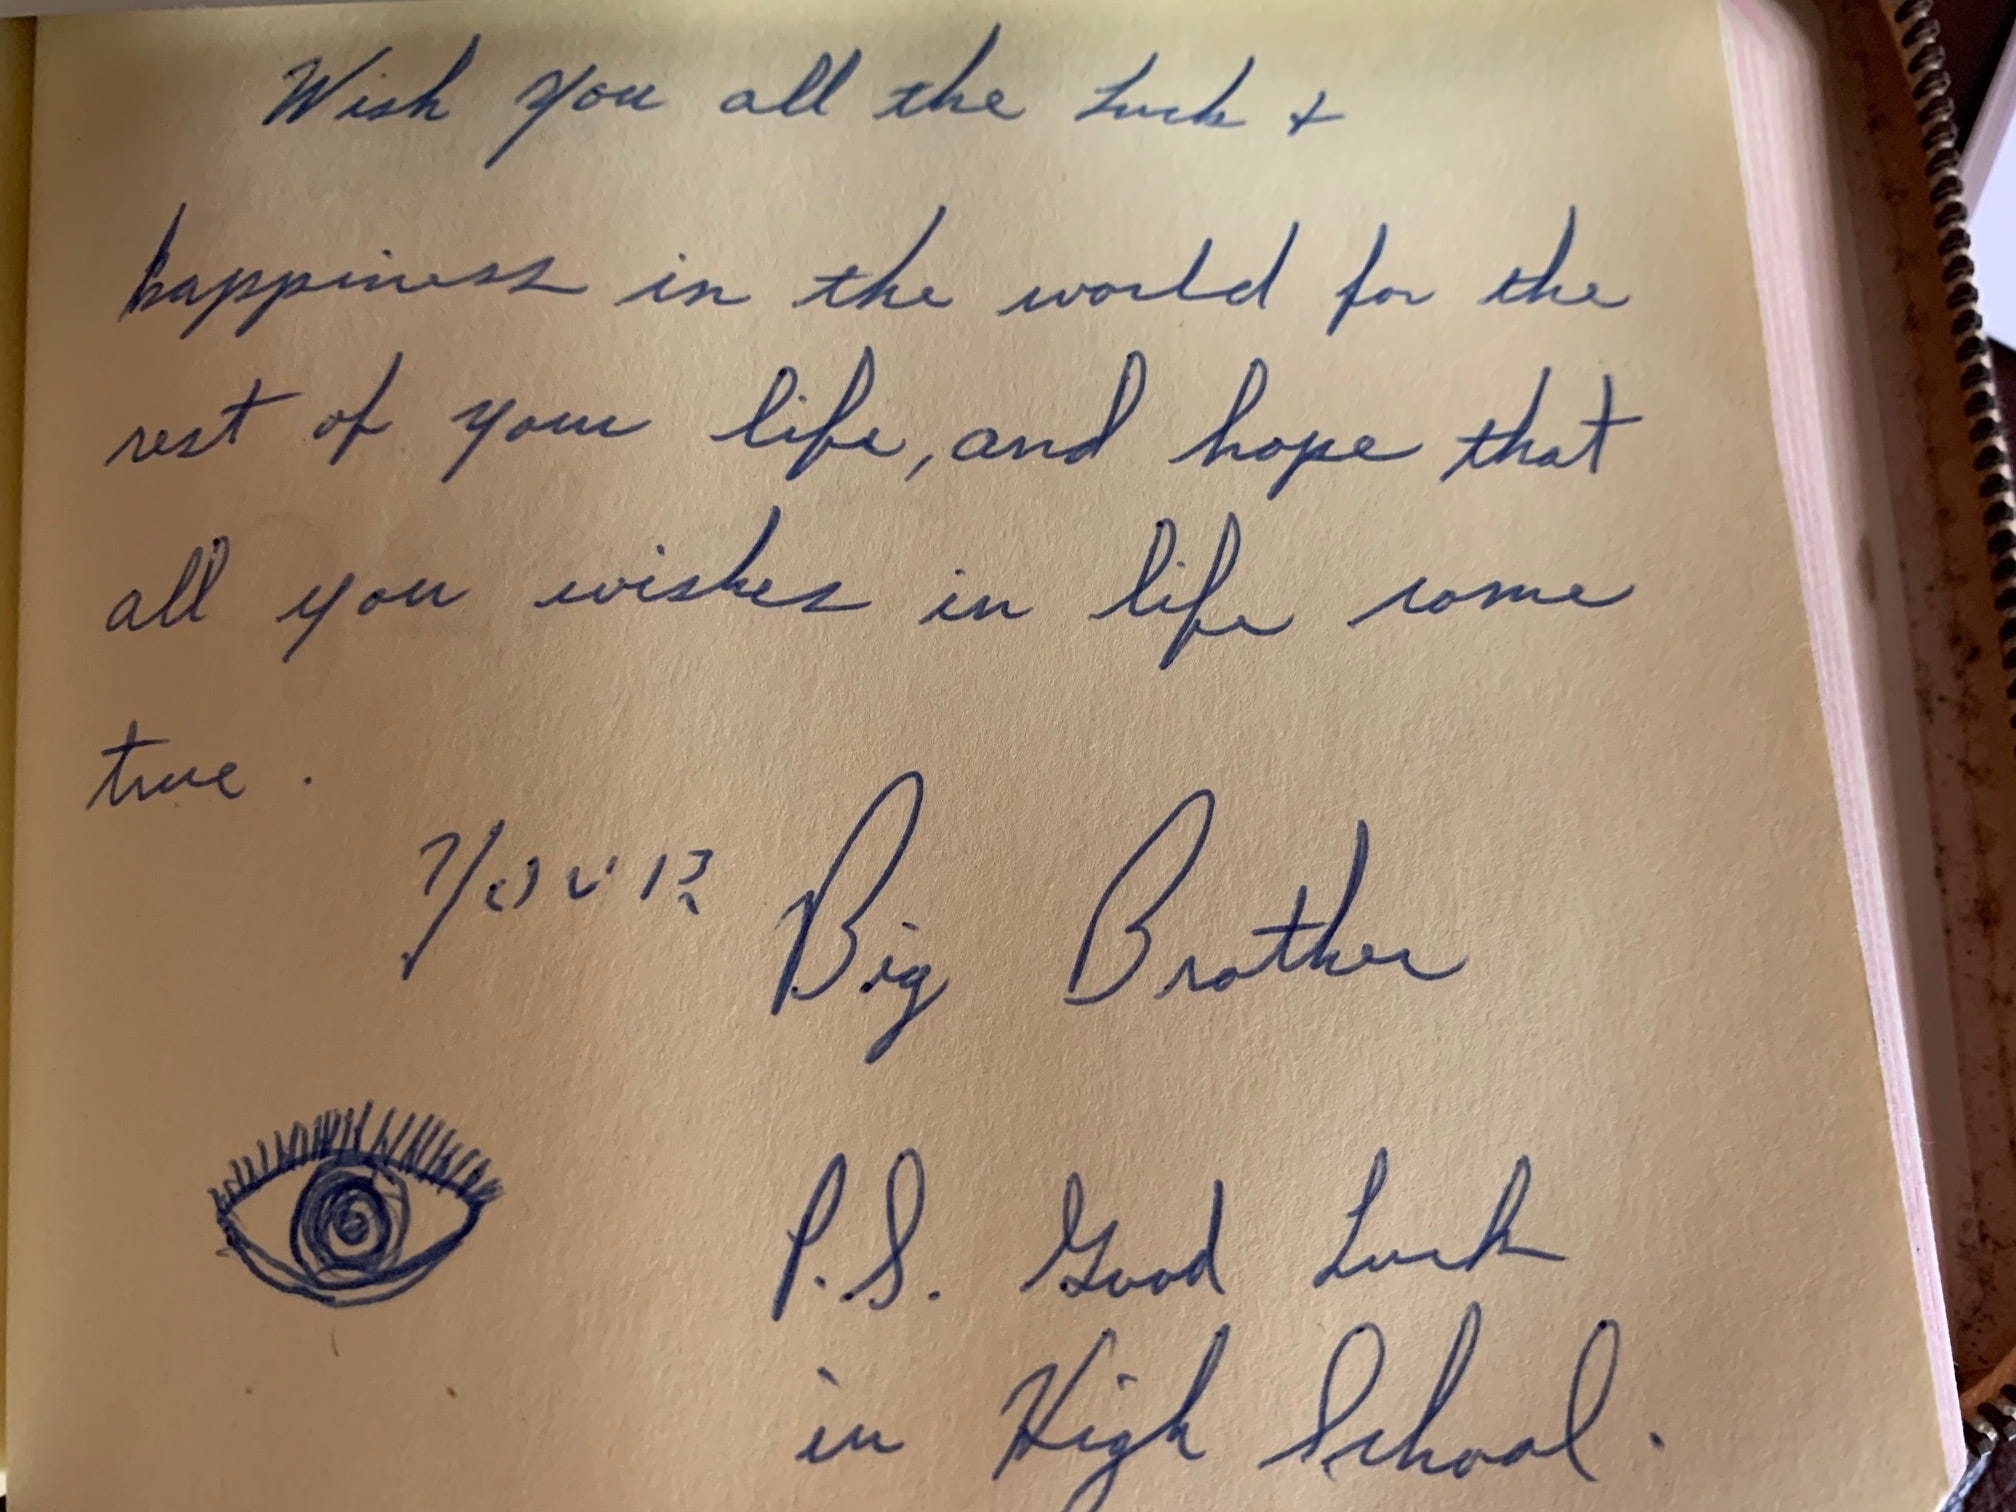 Wish you all the Luck +
happiness in the world for the
rest of your life, and hope that
all you wishes in life come
true.
YOUR Big Brother
P.S. Good Luck
in High School.